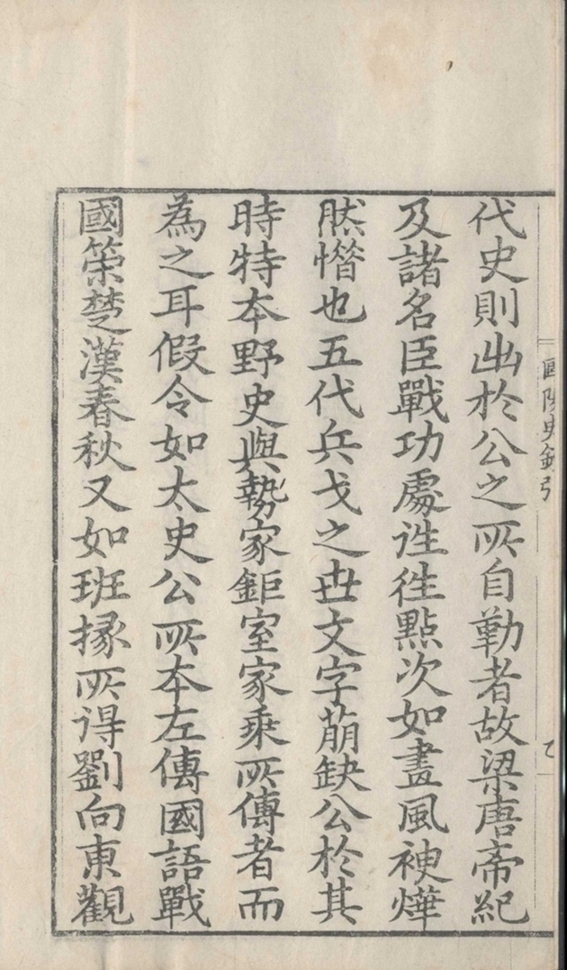 歐陽史鈔引
代史則出於公之所自勒者故梁唐帝紀
及諸名臣戰功處徃徃點次如畫風神燁
然惜也五代兵戈之世文字崩缺公於其
時特本野史與勢家鉅室家乘所傳者而
為之耳假令如太史公所本左傳國語戰
國策楚漢春秋又如班掾所得劉向東觀